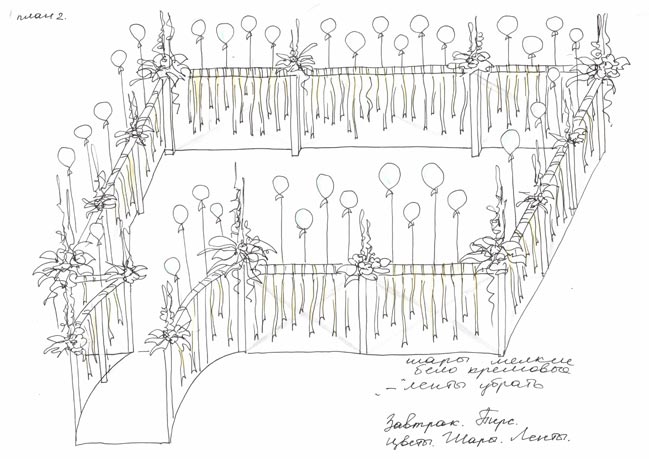 план 2.
шары мелкие
бело кремовые
— ленты убрать
Завтрак. Пирс.
Цветы. Шары. Ленты.